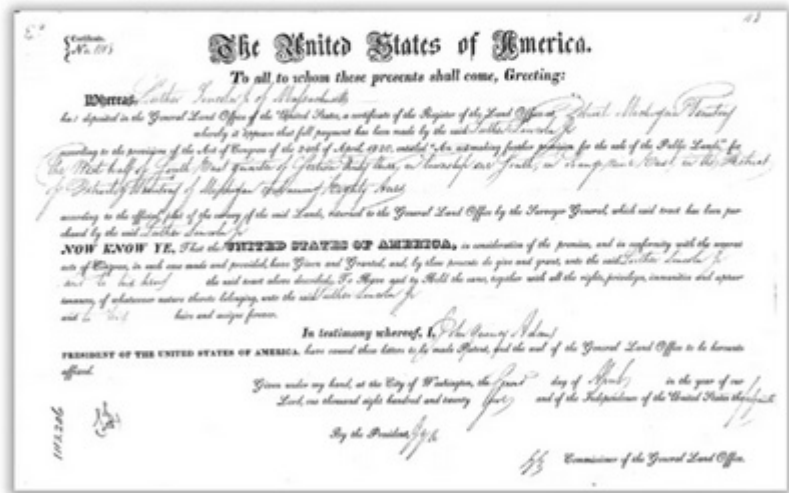 Certificate
No.
The United States of America.
To all to whom these presents shall come, Greeting:
Whereas, Luther Lincoln Jr of Massachusetts
has deposited in the General Land Office of the United States, a certificate of the Register of the Land Office at Detroit Michigan Territory
whereby it appears that full payment has been made by the said Luther Lincoln Jr
according to the provision of the Act of Congress of the 24th of April, 1820, entitled "An act making further provision for the sale of the Public Lands," for
the West half of South East quarter of Section thirty three, in township one South, in Range nine East, in the District
of Detroit, Territory of Michigan Eighty Acres
according to the official plat of the survey of the said Lands, returned to the General Land Office by the Surveyor General, which said tract has been pur-
chased by the said Luther Lincoln Jr
NOW KNOW YE, That the UNITED STATES OF AMERICA, in consideration of the premises, and in conformity with the several
acts of Congress, in such case made and provided, have Given and Granted, and, by these presents do give and grant, unto the said Luther Lincoln Jr
and to his heirs the said tract above described: To Have and to Hold the same, together with all the rights, privileges, immunities and appur-
tenances, of whatsoever nature thereto belonging, unto the said Luther Lincoln Jr
and to his heirs and assigns forever.
In testimony whereof, I, John Quincy Adams
PRESIDENT OF THE UNITED STATES OF AMERICA, have caused these letters to be made Patent, and the seal of the General Land Office to be hereunto
affixed.
Given under my hand, at the City of Washington, the day of April in the year of our
Lord, one thousand eight hundred and twenty and of the Independence of the United States the
By the President,
Commissioner of the General Land Office.